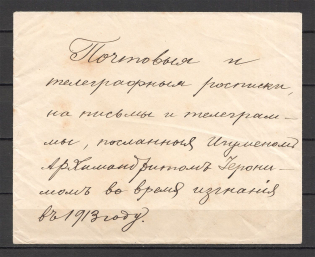 Почтовыя и
телеграфныя росписки,
на письмы и телеграм-
мы, посланныя Игуменомъ
Архимандритомъ Іерони-
момъ во время изгнанія
въ 1913 году.